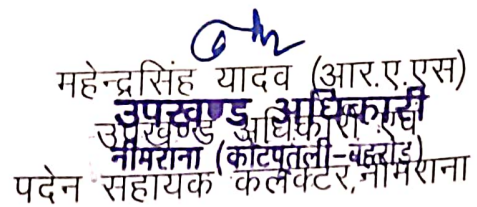 महेन्द्रसिंह यादव (आर.ए.एस)
उपखण्ड अधिकारी
उपखण्ड अधिकारी एवं
नीमराना (कोटपूतली-बहरोड़)
पदेन सहायक कलेक्टर,नीमराना